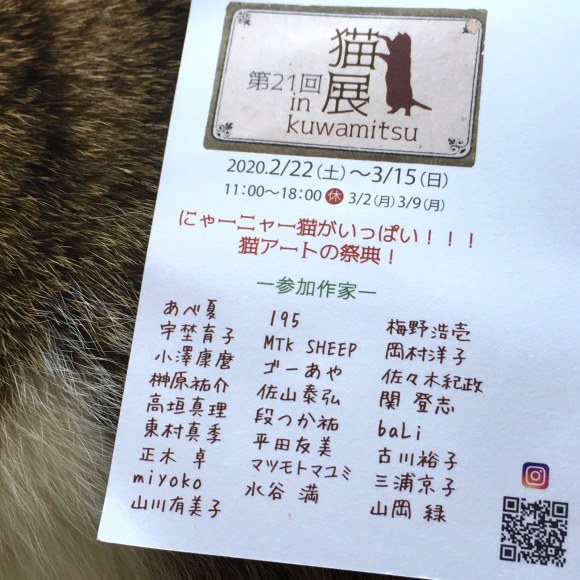 第21回
猫展
in
kuwamitsu
2020.2/22(土)～3/15(日)
11:00～18:00 休 3/2(月)3/9(月)
にゃーニャー猫がいっぱい！！！
猫アートの祭典！
ー参加作家ー
あべ夏
宇埜育子
小澤康麿
榊原祐介
高垣真理
東村真季
正木 卓
miyoko
山川有美子
195
MTK SHEEP
ゴーあや
佐山泰弘
段つか祐
平田友美
マツモトマユミ
水谷 満
梅野浩壱
岡村洋子
佐々木紀政
関 登志
baLi
古川裕子
三浦京子
山岡 緑